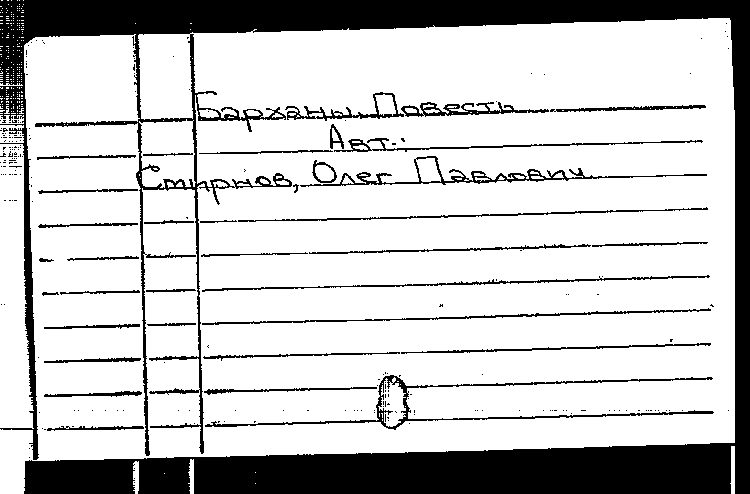 Барханы. Повесть
Авт.:
Смирнов, Олег Павлович